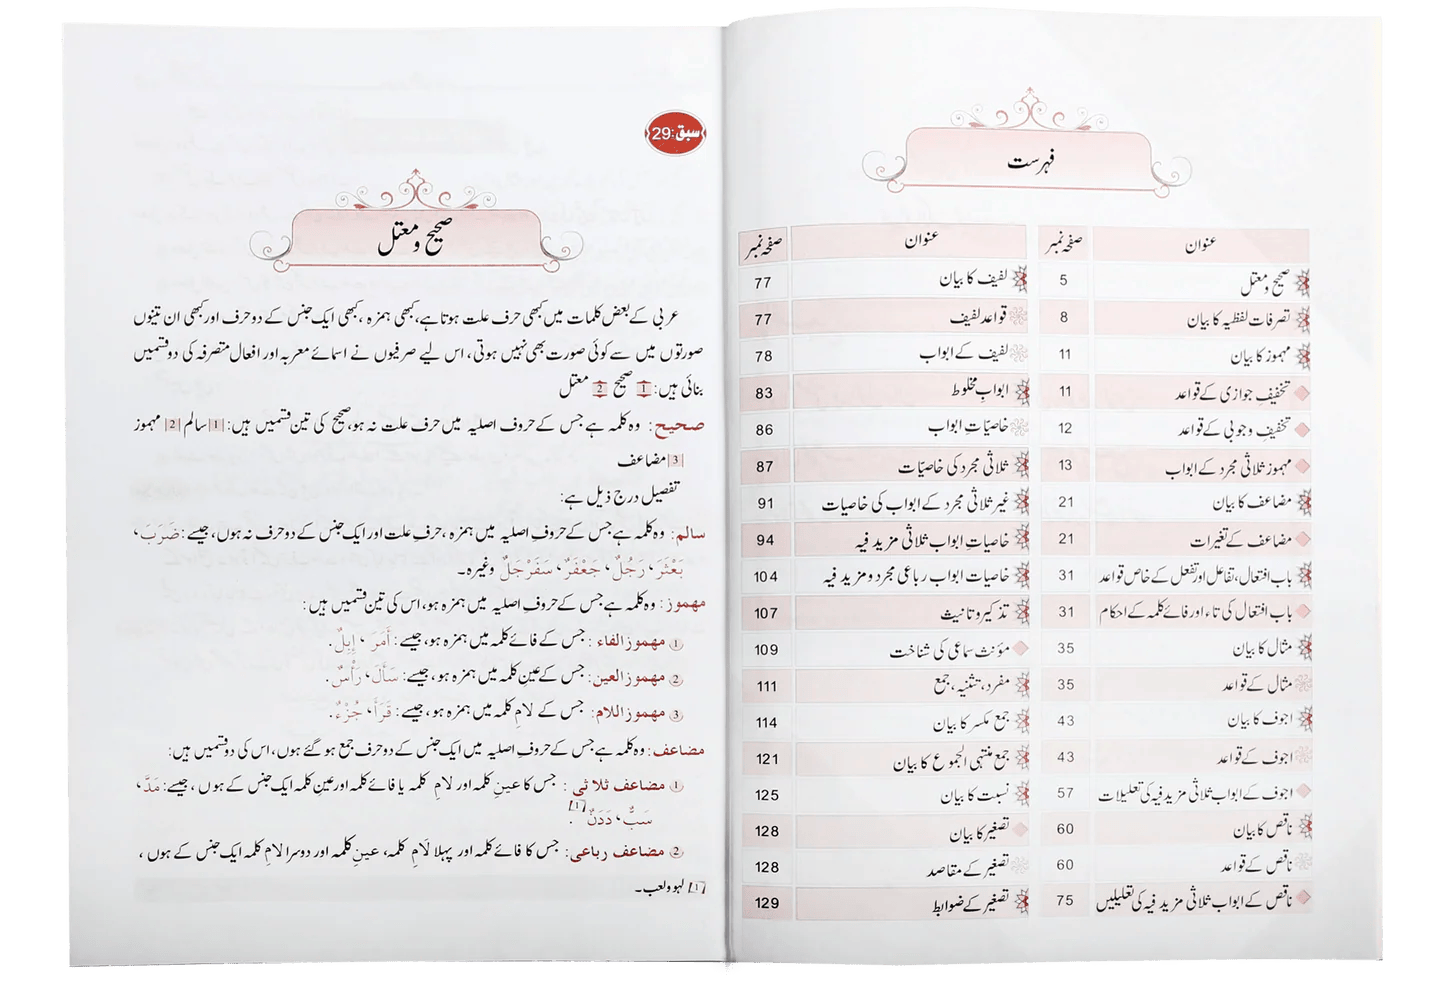 فہرست
عنوان صفحہ نمبر عنوان صفحہ نمبر
صحیح و معتل 5 لفیف کا بیان 77
تصرفات لفظیہ کا بیان 8 قواعد لفیف 77
مہموز کا بیان 11 لفیف کے ابواب 78
تخفیف جوازی کے قواعد 11 ابواب مخلوط 83
تخفیف وجوبی کے قواعد 12 خاصیّات ابواب 86
مہموز ثلاثی مجرد کے ابواب 13 ثلاثی مجرد کی خاصیّات 87
مضاعف کا بیان 21 غیر ثلاثی مجرد کے ابواب کی خاصیات 91
مضاعف کے تغیرات 21 خاصیاتِ ابواب ثلاثی مزید فیہ 94
باب افتعال، تفاعل اور تفعل کے خاص قواعد 31 خاصیات ابواب رباعی مجرد و مزید فیہ 104
باب افتعال کی تاء اور فائے کلمہ کے احکام 31 تذکیر و تانیث 107
مثال کا بیان 35 مؤنث سماعی کی شناخت 109
مثال کے قواعد 35 مفرد، تثنیہ، جمع 111
اجوف کا بیان 43 جمع مکسر کا بیان 114
اجوف کے قواعد 43 جمع منتہی الجموع کا بیان 121
اجوف کے ابواب ثلاثی مزید فیہ کی تعلیلات 57 نسبت کا بیان 125
ناقص کا بیان 60 تصغیر کا بیان 128
ناقص کے قواعد 60 تصغیر کے مقاصد 128
ناقص کے ابواب ثلاثی مزید فیہ کی تعلیلیں 75 تصغیر کے ضوابط 129
سبق:29
صحیح و معتل
عربی کے بعض کلمات میں کبھی حرف علت ہوتا ہے، کبھی ہمزہ، کبھی ایک جنس کے دو حرف اور کبھی ان تینوں
صورتوں میں سے کوئی صورت بھی نہیں ہوتی، اس لیے صرفیوں نے اسمائے معربہ اور افعال متصرفہ کی دو قسمیں
بنائی ہیں: 1 صحیح 2 معتل
صحیح: وہ کلمہ ہے جس کے حروف اصلیہ میں حرف علت نہ ہو، صحیح کی تین قسمیں ہیں: 1 سالم 2 مہموز
3 مضاعف
تفصیل درج ذیل ہے:
سالم: وہ کلمہ ہے جس کے حروفِ اصلیہ میں ہمزہ، حرفِ علت اور ایک جنس کے دو حرف نہ ہوں، جیسے: ضَرَبَ،
بَعْثَرَ، رَجُلٌ، جَعْفَرٌ، سَفَرْجَلٌ وغیرہ۔
مہموز: وہ کلمہ ہے جس کے حروفِ اصلیہ میں ہمزہ ہو، اس کی تین قسمیں ہیں:
① مہموز الفاء: جس کے فائے کلمہ میں ہمزہ ہو، جیسے: أَمَرَ، إِبِلٌ.
② مہموز العین: جس کے عینِ کلمہ میں ہمزہ ہو، جیسے: سَأَلَ، رَأْسٌ.
③ مہموز اللام: جس کے لامِ کلمہ میں ہمزہ ہو، جیسے: قَرَأَ، جُزْءٌ.
مضاعف: وہ کلمہ ہے جس کے حروفِ اصلیہ میں ایک جنس کے دو حرف جمع ہو گئے ہوں، اس کی دو قسمیں ہیں:
① مضاعف ثلاثی: جس کا عینِ کلمہ اور لامِ کلمہ یا فائے کلمہ اور عینِ کلمہ ایک جنس کے ہوں، جیسے: مَدَّ،
سَبٌّ، دَدَنٌ [1].
② مضاعف رباعی: جس کا فائے کلمہ اور پہلا لامِ کلمہ، عینِ کلمہ اور دوسرا لامِ کلمہ ایک جنس کے ہوں،
[1] لہو و لعب۔